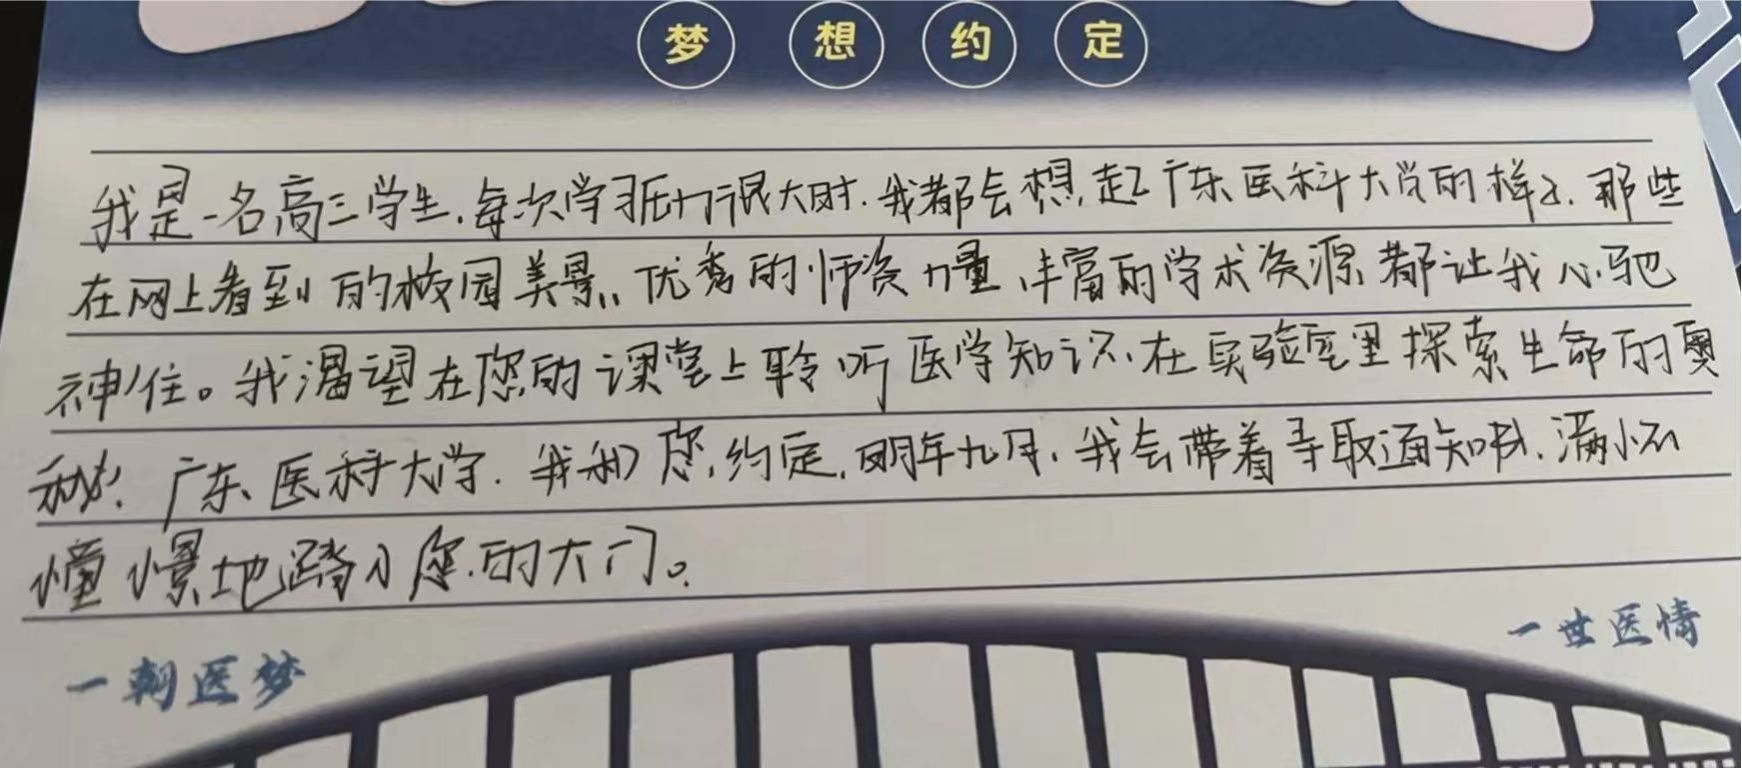 梦想约定
我是一名高三学生，每次学习压力很大时，我都会想起广东医科大学的样子，那些
在网上看到的校园美景、优秀的师资力量、丰富的学术资源都让我心驰
神往。我渴望在您的课堂上聆听医学知识，在实验室里探索生命的奥
秘！广东医科大学，我和您约定，明年九月，我会带着录取通知书，满怀
憧憬地踏入您的大门。
一朝医梦
一世医情